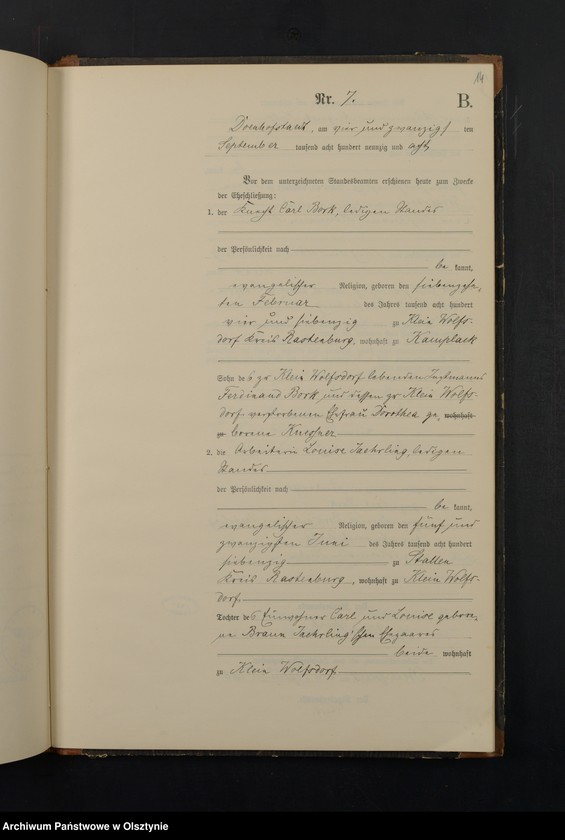 14
Nr. 7. B.
Doenhofstaedt, am vier und zwanzigsten
September tausend acht hundert neunzig und acht
Vor dem unterzeichneten Standesbeamten erschienen heute zum Zwecke
der Eheschließung:
1. der Knecht Carl Bork, ledigen Standes
der Persönlichkeit nach
be kannt,
evangelischer Religion, geboren den siebenzehn-
ten Februar des Jahres tausend acht hundert
vier und siebenzig zu Klein Wolfs-
dorf Kreis Rastenburg, wohnhaft zu Kamplack
Sohn des zu Klein Wolfsdorf lebenden Instmanns
Ferdinand Bork, und dessen zu Klein Wolfs-
dorf verstorbenen Ehefrau Dorothea ge, wohnhaft
zu borene
2. die Arbeiterin Louise Jaehrling, ledigen
Standes
der Persönlichkeit nach
be kannt,
evangelischer Religion, geboren den fünf und
zwanzigsten Juni des Jahres tausend acht hundert
siebenzig zu Stallen
Kreis Rastenburg, wohnhaft zu Klein Wolfs-
dorf.
Tochter des Einwohner Carl und Louise gebore-
ne Braun Jaehrling'schen Ehepaares
beide wohnhaft
zu Klein Wolfsdorf.
Archiwum Państwowe w Olsztynie